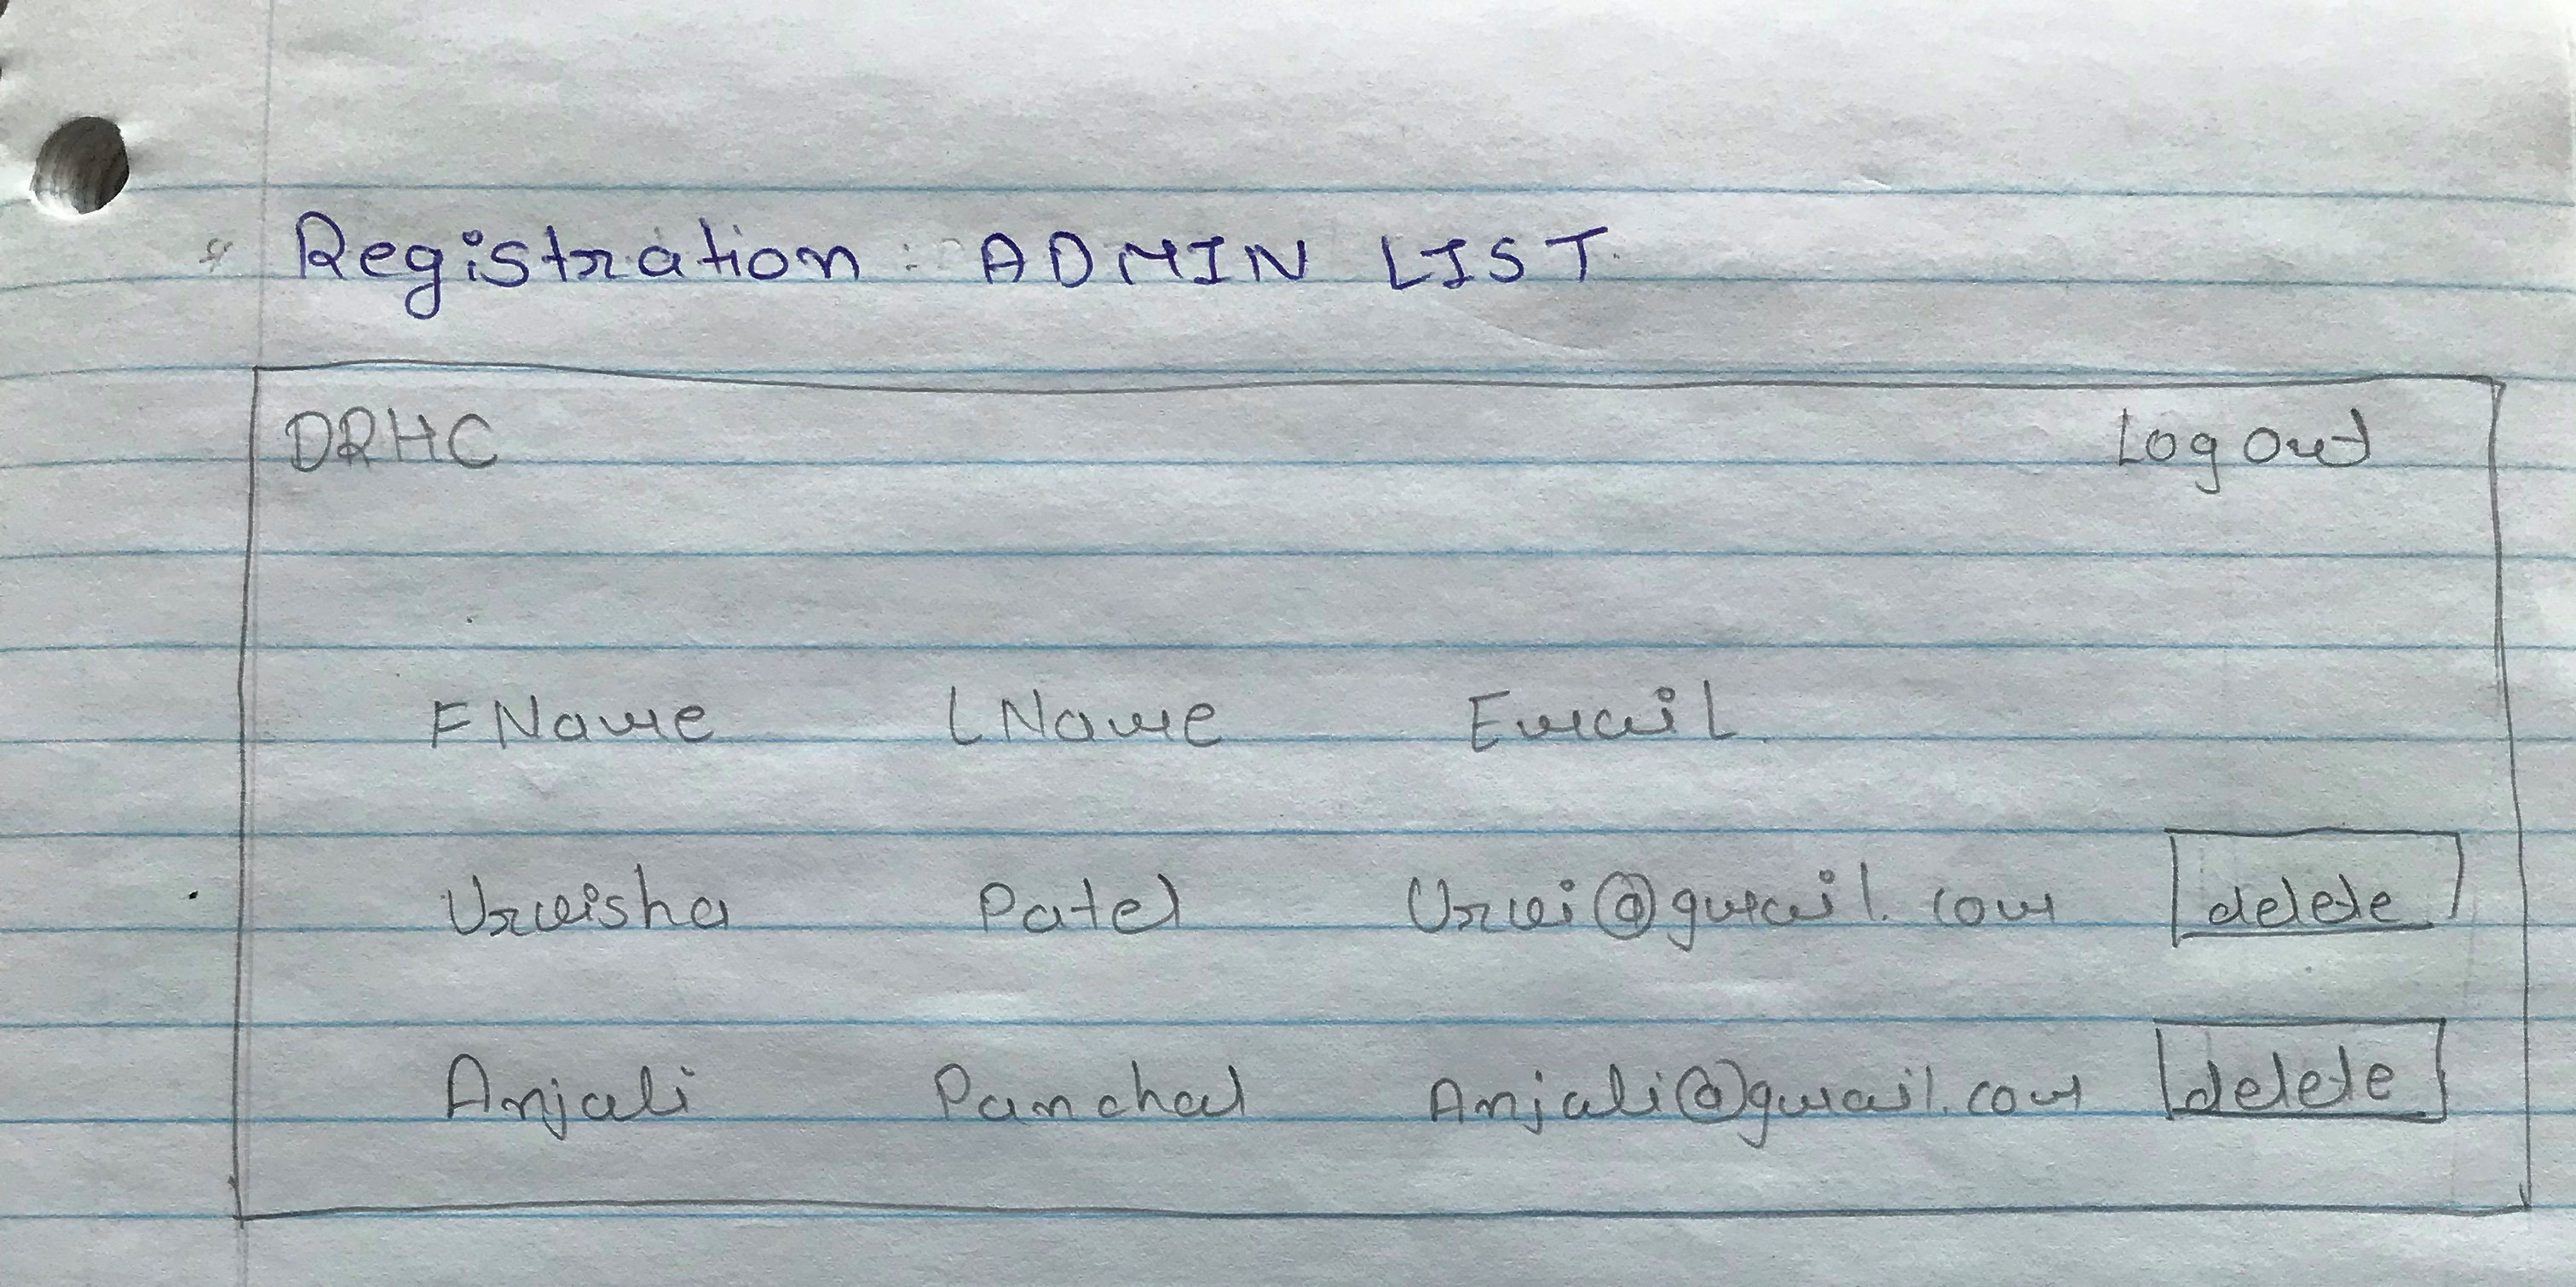 Registration : ADMIN LIST.
DRHC Log Out
FName LName Email
Urvisha Patel Urvi@gmail.com delete
Anjali Panchal Anjali@gmail.com delete